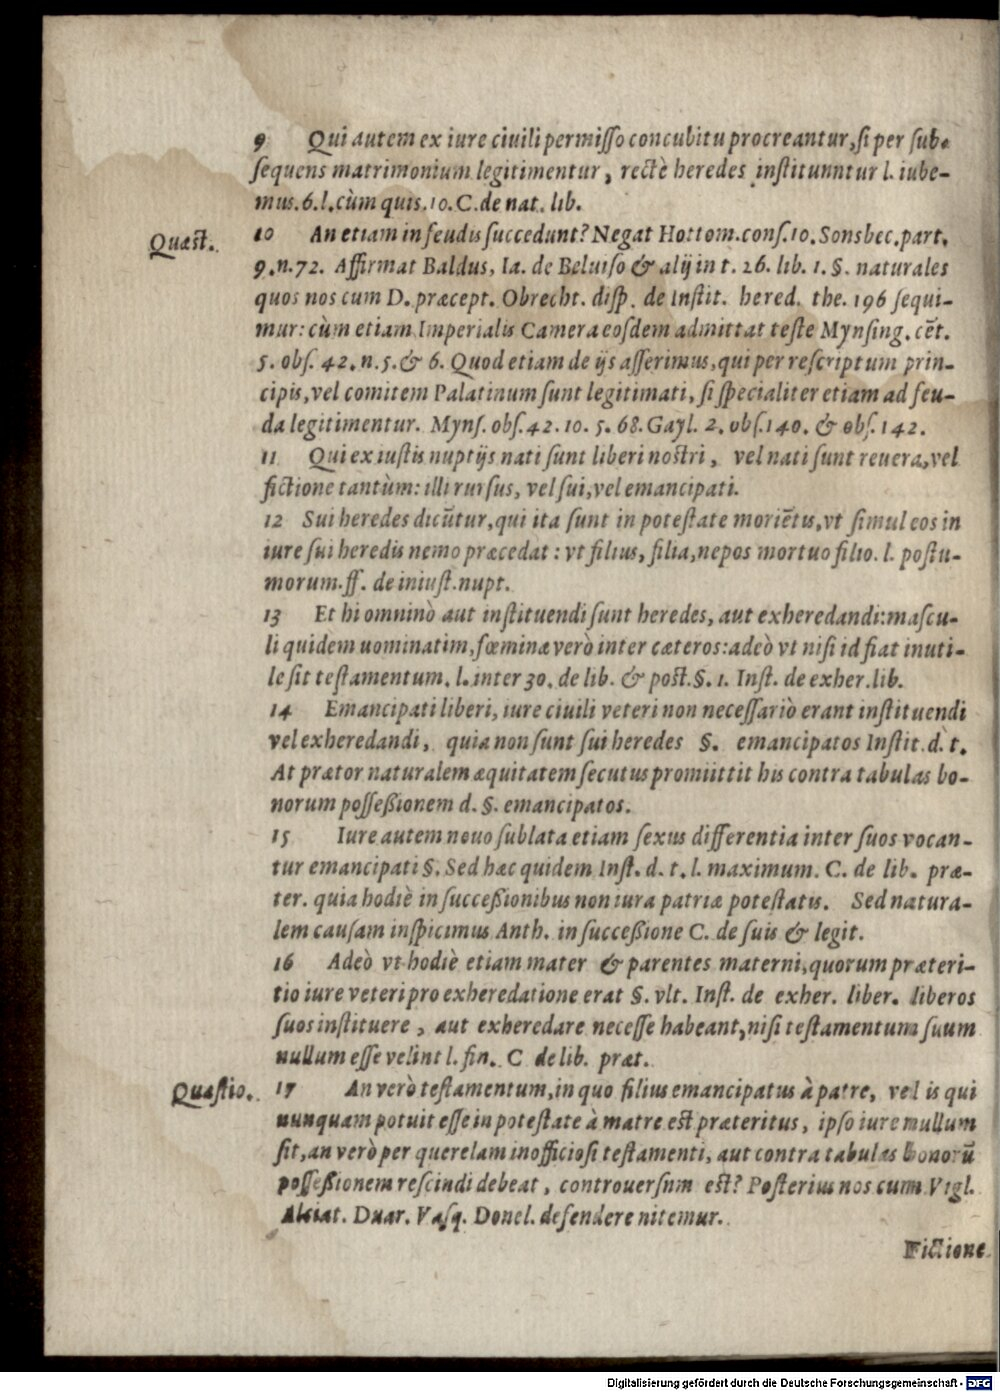 9 Qui autem ex iure ciuili permisso concubitu procreantur, si per sub-
sequens matrimonium legitimentur, rectè heredes instituuntur l. iube-
mus. 6. l. cùm quis. 10. C. de nat. lib.
Quæst. 10 An etiam in feudis succedunt? Negat Hottom. cons. 10. Sonsbec. part.
9. n. 72. Affirmat Baldus, Ia. de Beluiso & alij in t. 26. lib. 1. §. naturales
quos nos cum D. præcept. Obrecht. disp. de Instit. hered. the. 196 sequi-
mur: cùm etiam Imperialis Camera eosdem admittat teste Mynsing. cēt.
5. obs. 42. n. 5. & 6. Quod etiam de ijs asserimus, qui per rescriptum prin-
cipis, vel comitem Palatinum sunt legitimati, si specialiter etiam ad feu-
da legitimentur. Myns. obs. 42. 10. 5. 68. Gayl. 2. obs. 140. & obs. 142.
11 Qui ex iustis nuptijs nati sunt liberi nostri, vel nati sunt reuera, vel
fictione tantùm: illi rursus, vel sui, vel emancipati.
12 Sui heredes dicūtur, qui ita sunt in potestate moriētis, vt simul eos in
iure sui heredis nemo præcedat: vt filius, filia, nepos mortuo filio. l. postu-
morum. ff. de iniust. nupt.
13 Et hi omninò aut instituendi sunt heredes, aut exheredandi: mascu-
li quidem uominatim, fœminæ verò inter cæteros: adeò vt nisi id fiat inuti-
le sit testamentum. l. inter 30. de lib. & post. §. 1. Inst. de exher. lib.
14 Emancipati liberi, iure ciuili veteri non necessariò erant instituendi
vel exheredandi, quia non sunt sui heredes §. emancipatos Instit. d. t.
At prætor naturalem æquitatem secutus promiittit his contra tabulas bo-
norum possessionem d. §. emancipatos.
15 Iure autem nouo sublata etiam sexus differentia inter suos vocan-
tur emancipati §. Sed hæc quidem Inst. d. t. l. maximum. C. de lib. præ-
ter. quia hodiè in successionibus non iura patriæ potestatis. Sed natura-
lem causam inspicimus Anth. in successione C. de suis & legit.
16 Adeò vt hodiè etiam mater & parentes materni, quorum præteri-
tio iure veteri pro exheredatione erat §. vlt. Inst. de exher. liber. liberos
suos instituere, aut exheredare necesse habeant, nisi testamentum suum
nullum esse velint l. fin. C de lib. præt.
Quæstio. 17 An verò testamentum, in quo filius emancipatus à patre, vel is qui
nunquam potuit esse in potestate à matre est præteritus, ipso iure nullum
sit, an verò per querelam inofficiosi testamenti, aut contra tabulas bonorū
possessionem rescindi debeat, controuersum est? Posterius nos cum Vigl.
Alciat. Duar. Vasq. Donel. defendere nitemur.
Fictione